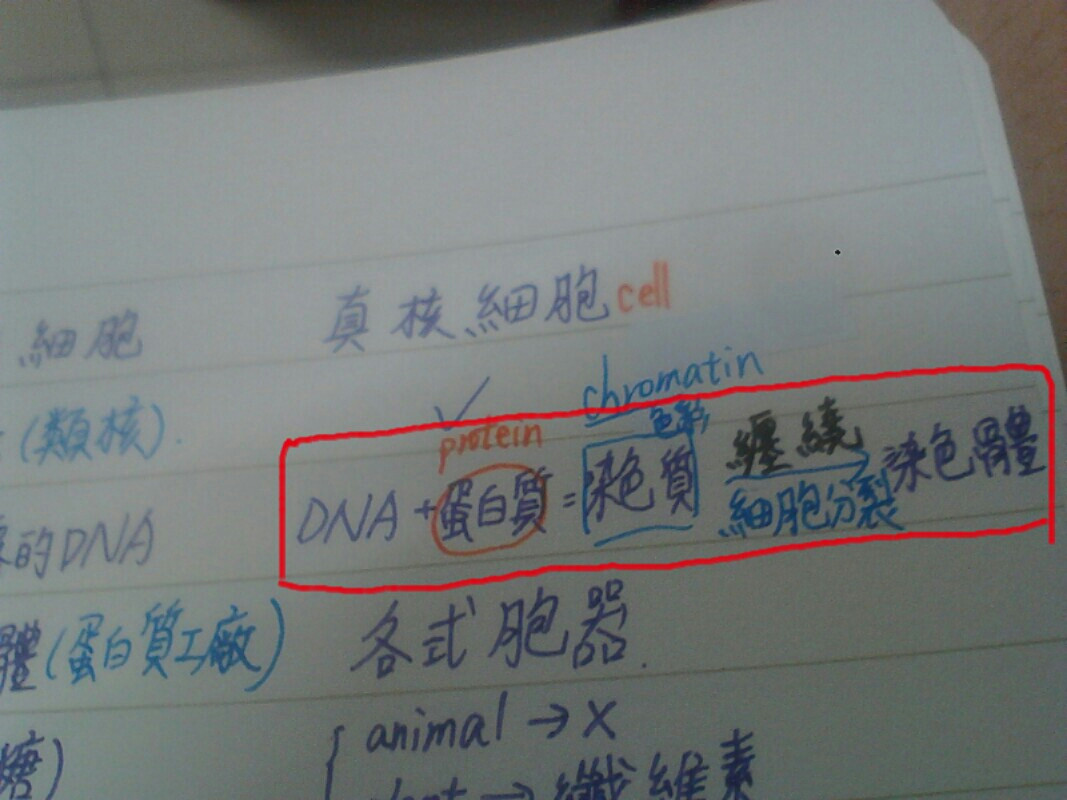 細胞 真核細胞 cell
(類核).
chromatin
protein 色彩 纏繞
DNA + 蛋白質 = 染色質 → 染色體
細胞分裂
的DNA
體(蛋白質工廠) 各式胞器.
糖) animal → X
→ 纖維素